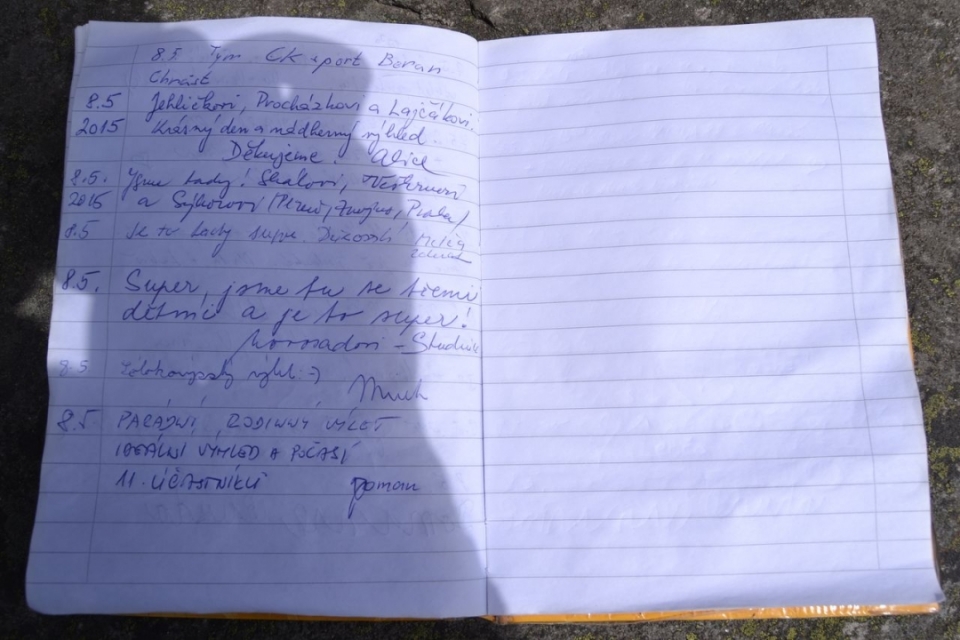 8.5 Tým CK sport Beran
Chrást
8.5 Jehličkovi, Procházkovi a Lajčákovi.
2015 Krásný den a nádherný výhled.
Děkujeme. Alice
8.5. Jsme tady! Skalovi,
2015 a Sýkorovi
8.5 Je to tady supr.
8.5. Super, jsme tu se třemi
dětmi a je to super!
8.5 výhled :-)
8.5 PARÁDNÍ, RODINNÝ VÝLET
IDEÁLNÍ VÝHLED A POČASÍ
11. ÚČASTNÍKŮ Roman